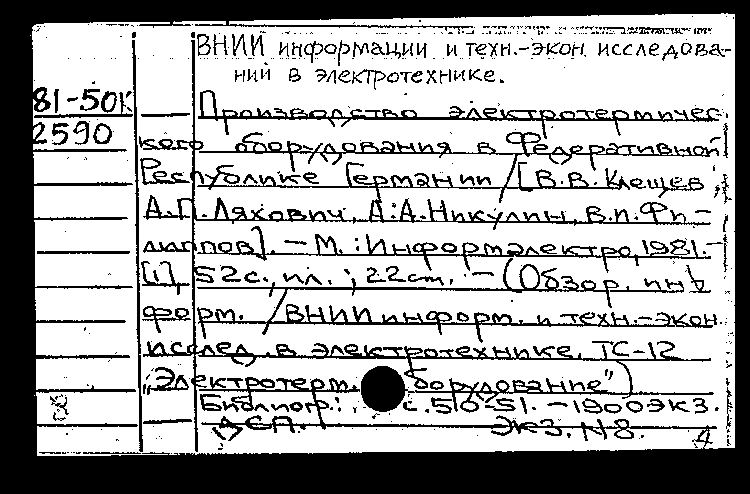 ВНИИ информации и техн.-экон. исследова-
ний в электротехнике.
81-50К
2590
Производство электротермичес-
кого оборудования в Федеративной
Республике Германии / [В.В. Клещев,
А.П. Ляхович, А.А. Никулин, В.П. Фи-
липпов]. – М. : Информэлектро, 1981. –
[1], 52 с., ил. ; 22 см. – (Обзор. ин-
форм. / ВНИИ информ. и техн.-экон.
исслед. в электротехнике. ТС-12
"Электротерм. оборудование")
Библиогр.: с. 50-51. – 1900 экз.
ДСП. Экз. N 8.